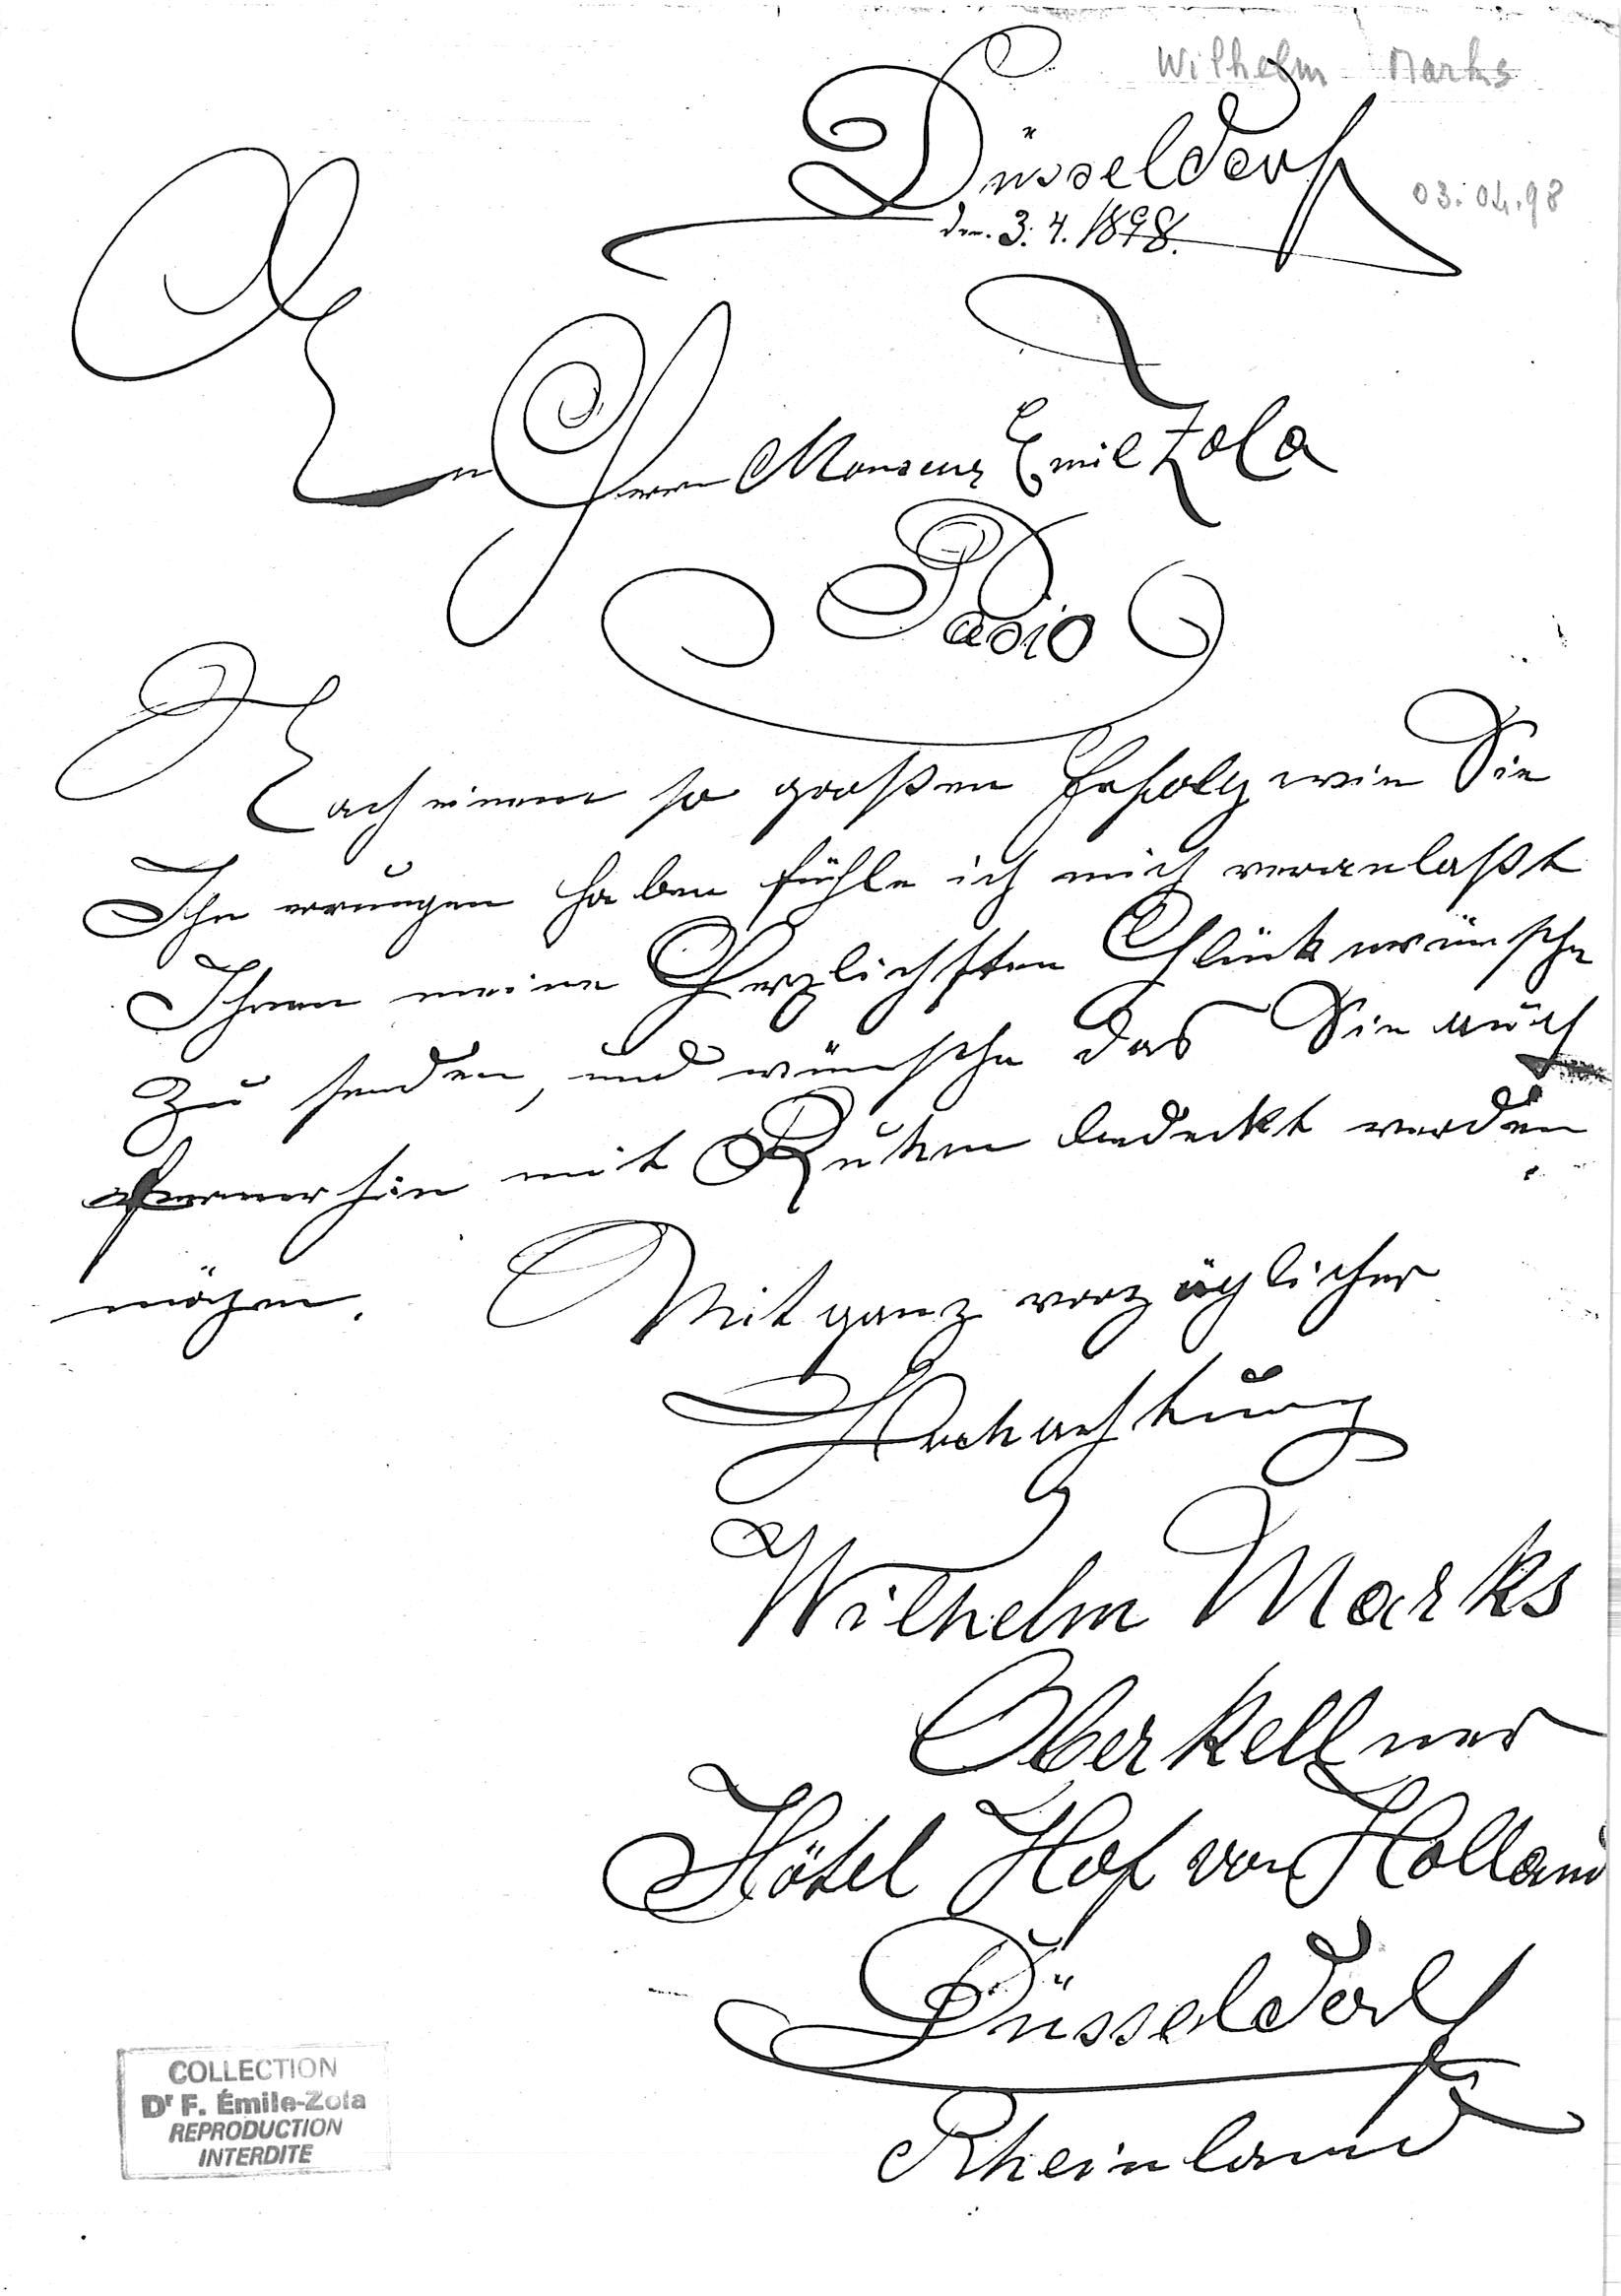 Wilhelm Marks
Düsseldorf
03.04.98
den 3. 4. 1898.
An Herrn Monseur Emil Zola
Paris
Nach einem so großen Erfolg wie Sie
Ihn errungen haben fühle ich mich veranlaßt
Ihnen meine Herzlichsten Glückwünsche
zu senden, und wünsche das Sie auch
fernerhin mit Ruhm bedeckt werden
mögen. Mit ganz vorzüglicher
Hochachtung
Wilhelm Marks
Oberkellner
Hôtel Hof von Holland
Düsseldorf
Rheinland
COLLECTION
Dr F. Émile-Zola
REPRODUCTION
INTERDITE